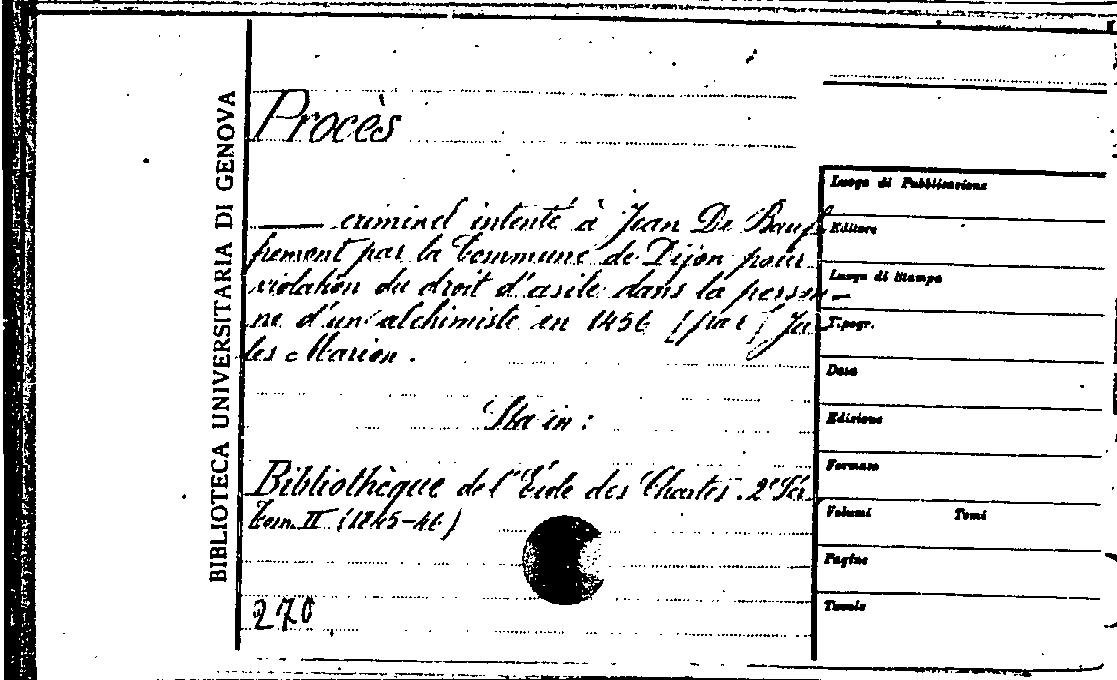 BIBLIOTECA UNIVERSITARIA DI GENOVA
Procès
—— criminel intenté à Jean De Bauf
fremont par la Commune de Dijon pour
violation du droit d'asile dans la person-
ne d'un alchimiste en 1456 [par] Ju
les Marion.
Sta in:
Bibliothèque de l'École des Chartes. 2e Sér.
Tom. II (1845-46)
270
Luogo di Pubblicazione
Editore
Luogo di Stampa
Tipogr.
Data
Edizione
Formato
Volumi Tomi
Pagine
Tavole